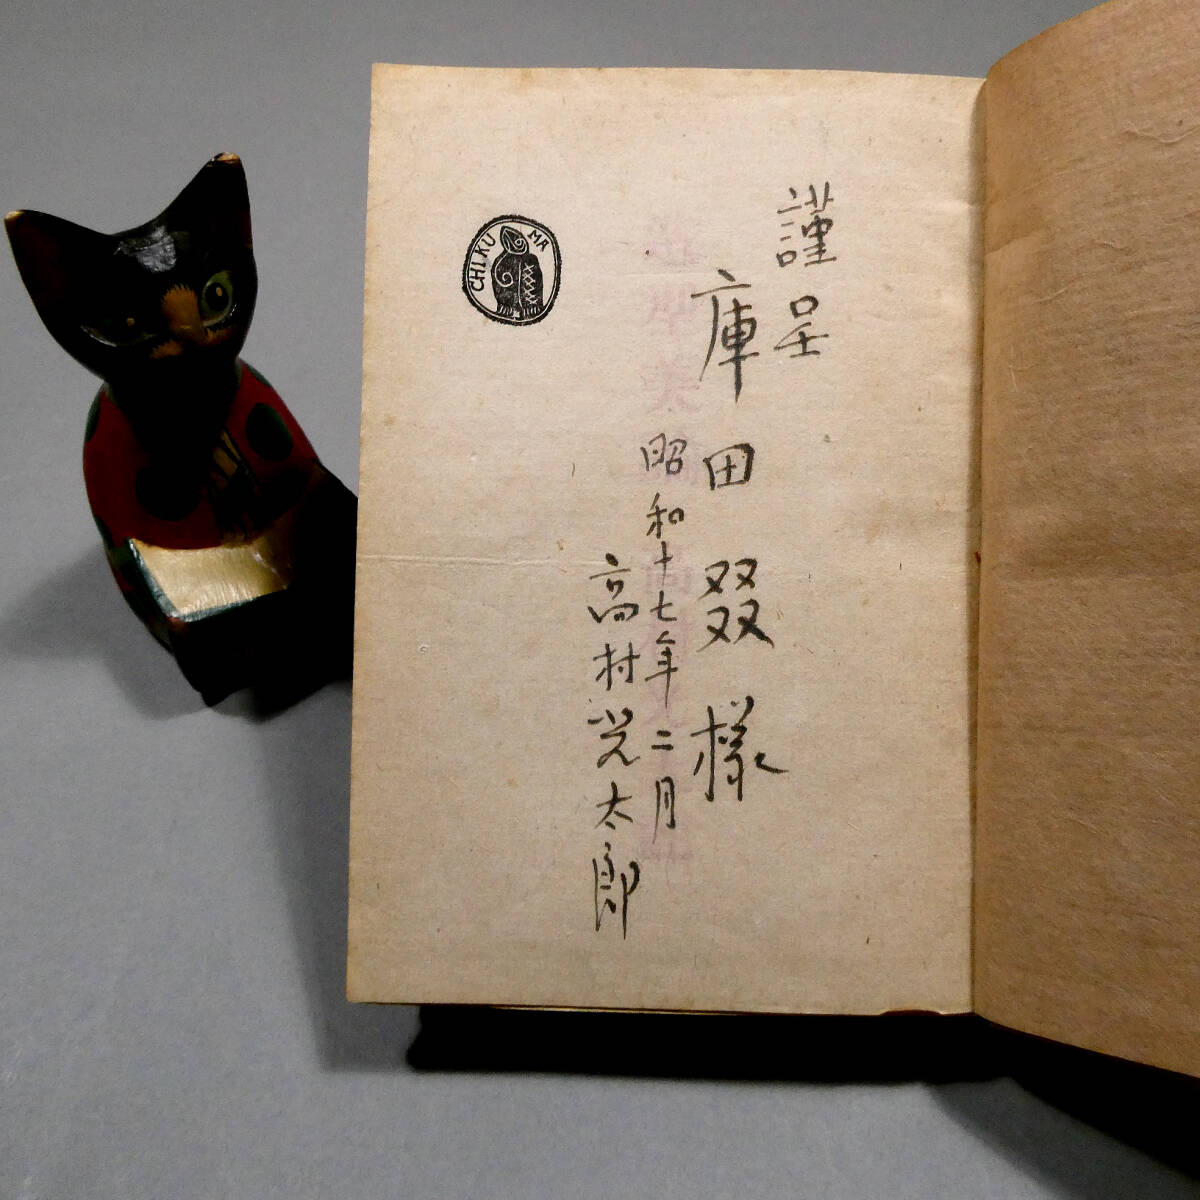 謹呈
庫田叕様
昭和十七年二月
高村光太郎
CHIKUMA